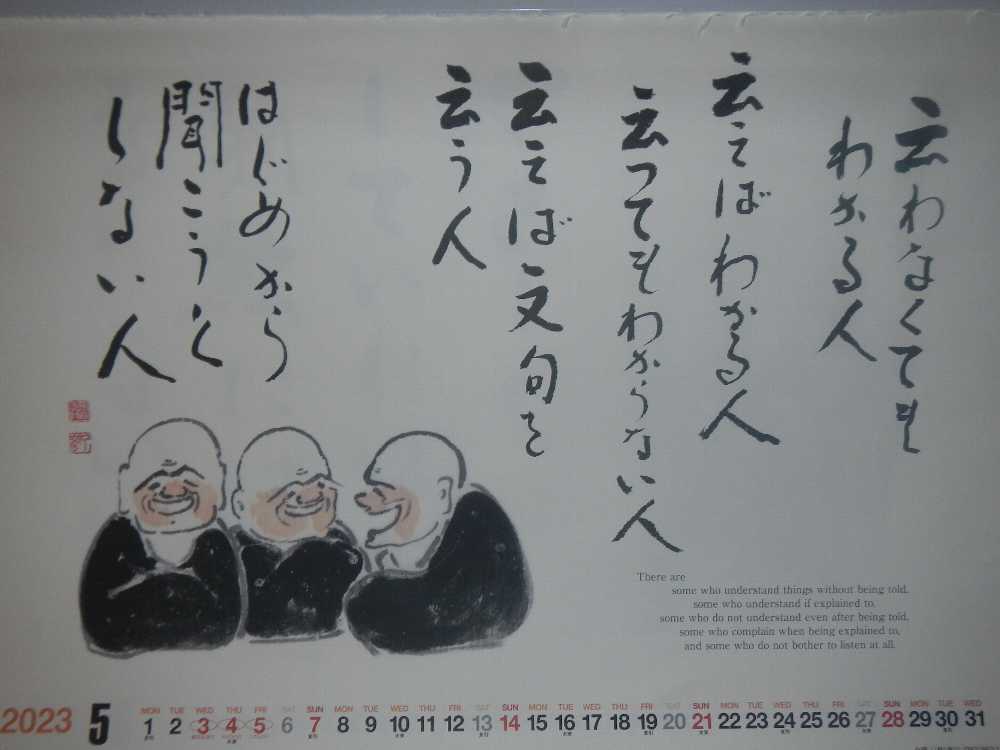 云わなくても
わかる人
云えばわかる人
云ってもわからない人
云えば文句を
云う人
はじめから
聞こうと
しない人
There are
some who understand things without being told,
some who understand if explained to,
some who do not understand even after being told,
some who complain when being explained to,
and some who do not bother to listen at all.
2023 5
MON TUE WED THU FRI SAT SUN MON TUE WED THU FRI SAT SUN MON TUE WED THU FRI SAT SUN MON TUE WED THU FRI SAT SUN MON TUE WED
1 2 3 4 5 6 7 8 9 10 11 12 13 14 15 16 17 18 19 20 21 22 23 24 25 26 27 28 29 30 31